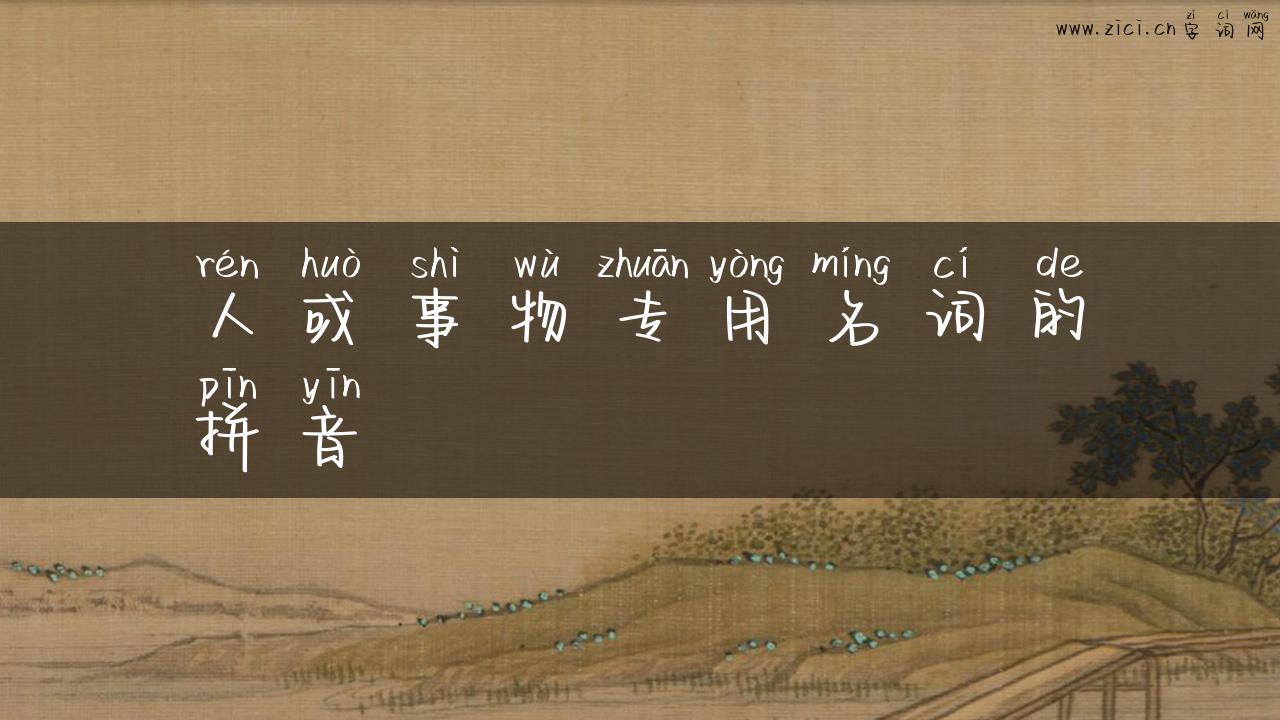 zì cí wǎng
www.zici.cn 字词网
rén huò shì wù zhuān yòng míng cí de
人或事物专用名词的
pīn yīn
拼音